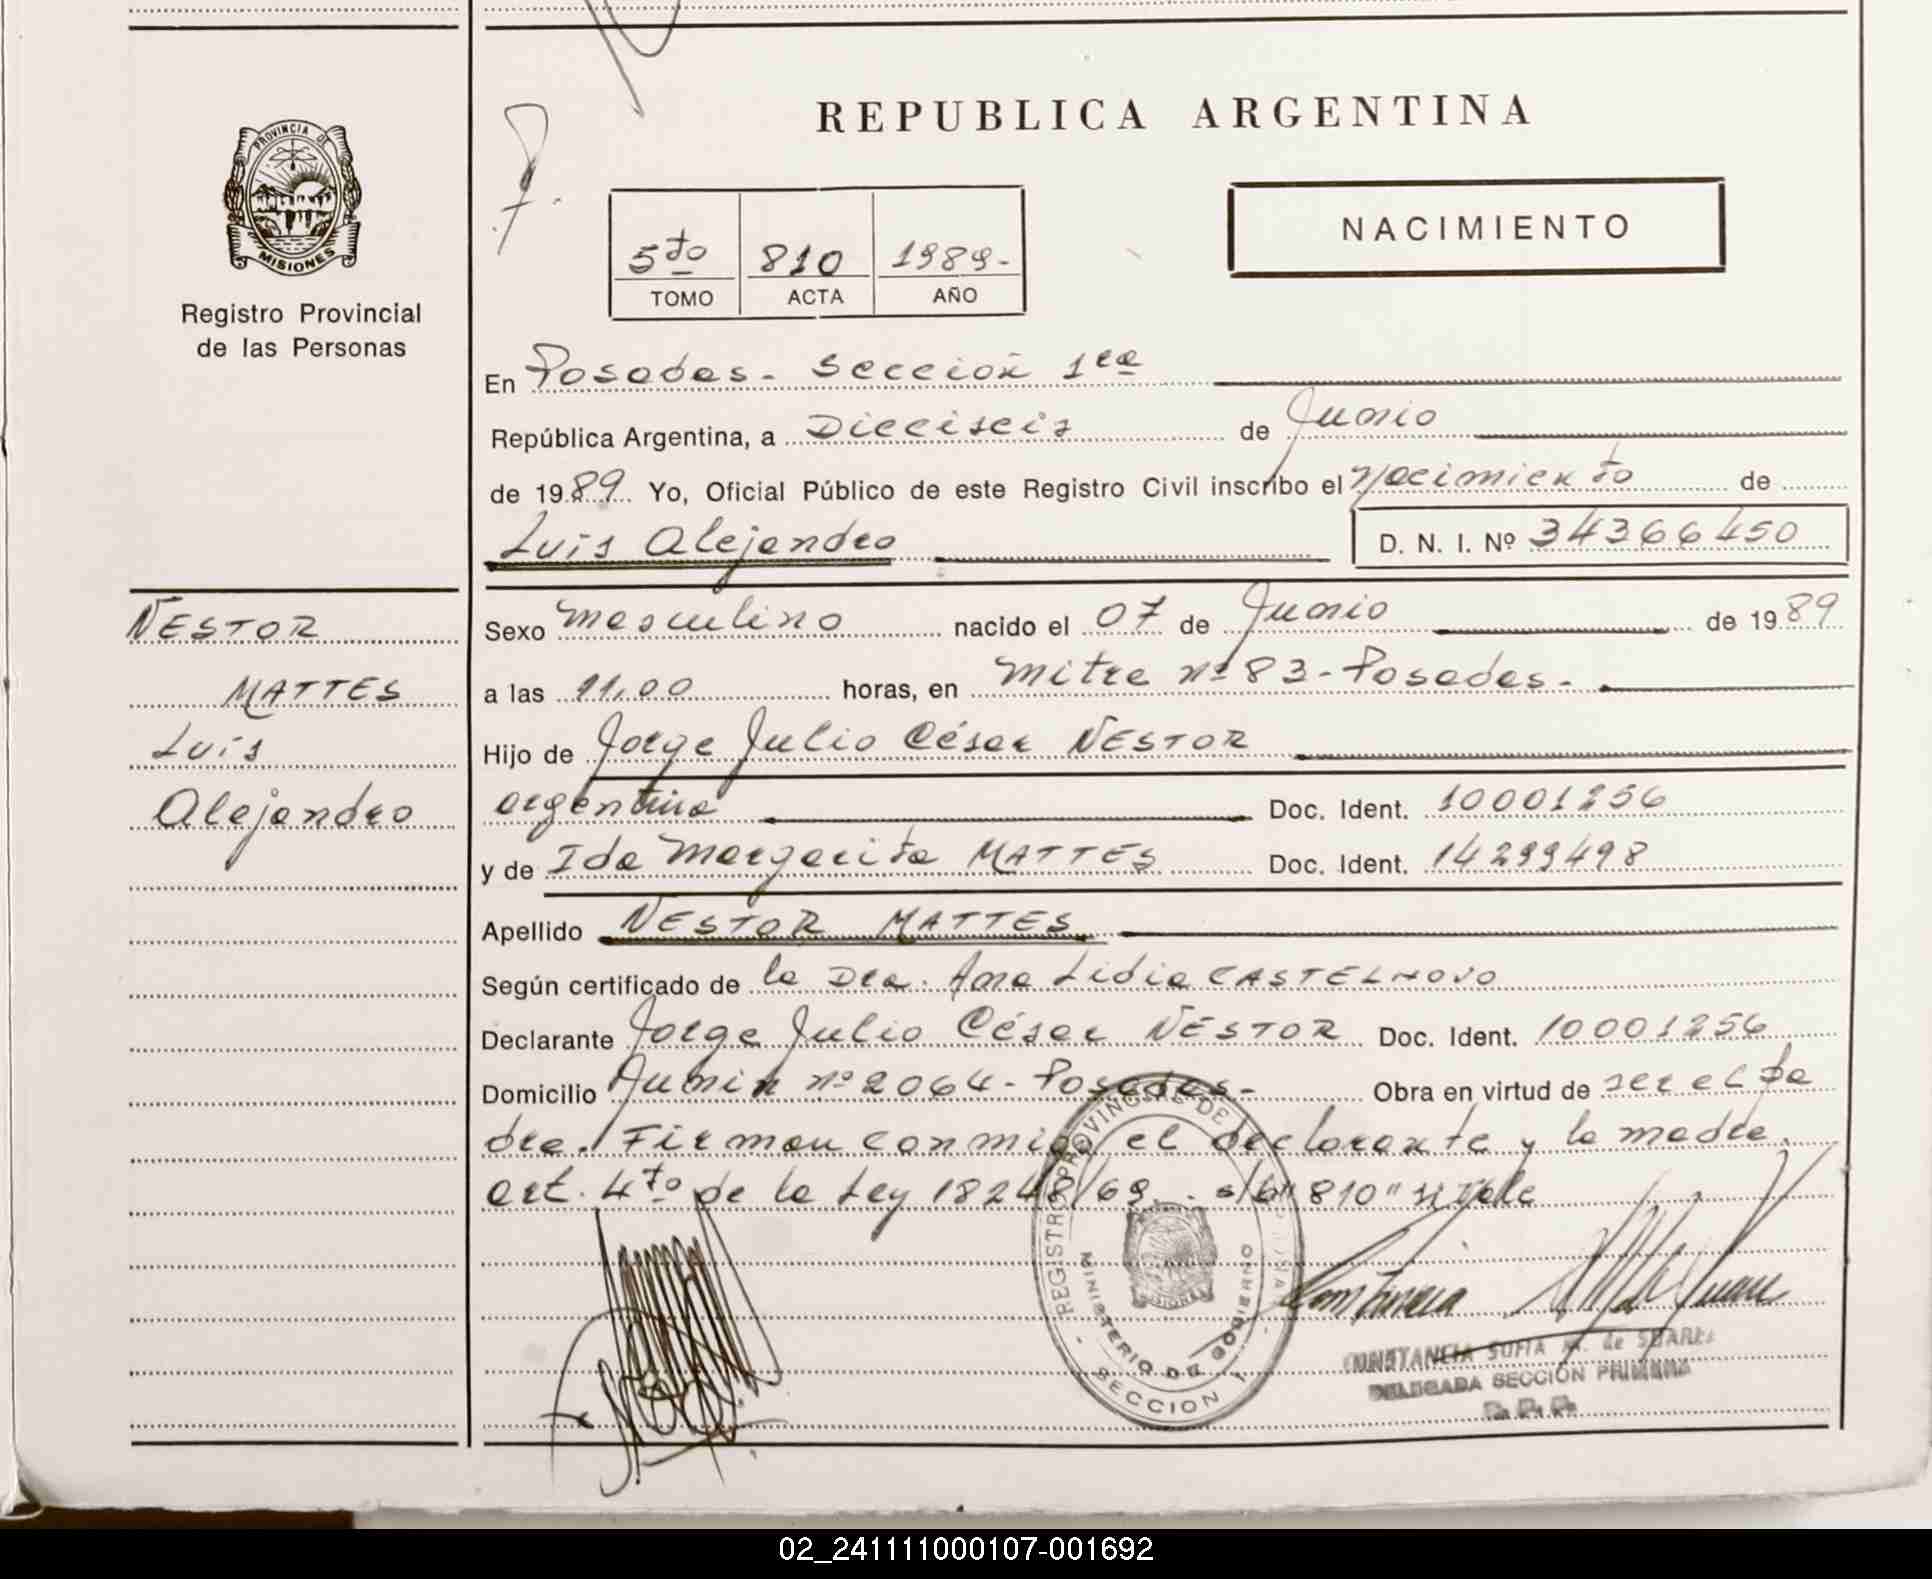 REPUBLICA ARGENTINA
PROVINCIA DE
MISIONES
Registro Provincial
de las Personas
5to 810 1989-
TOMO ACTA AÑO
NACIMIENTO
En Posadas - Sección 1ra
República Argentina, a Dieciseis de Junio
de 1989 Yo, Oficial Público de este Registro Civil inscribo el Nacimiento de
Luis Alejandro D. N. I. Nº 34366450
NESTOR
MATTES
Luis
Alejandro
Sexo masculino nacido el 07 de Junio de 1989
a las 11,00 horas, en Mitre nº 83 - Posadas -
Hijo de Jorge Julio César NESTOR
argentino Doc. Ident. 10001256
y de Ida Margarita MATTES Doc. Ident. 14299498
Apellido NESTOR MATTES
Según certificado de la Dra. Ana Lidia CASTELNOVO
Declarante Jorge Julio César NESTOR Doc. Ident. 10001256
Domicilio Junin nº 2064 - Posadas - Obra en virtud de ser el pa
dre. Firman conmigo el declarante y la madre.
art. 4to de la Ley 18248/69. s/b "810" si vale
REGISTRO PROVINCIAL DE
MINISTERIO DE GOBIERNO
MISIONES
SECCION 1
CONSTANCIA SOFIA M. de SUAREZ
DELEGADA SECCIÓN PRIMERA
02_241111000107-001692